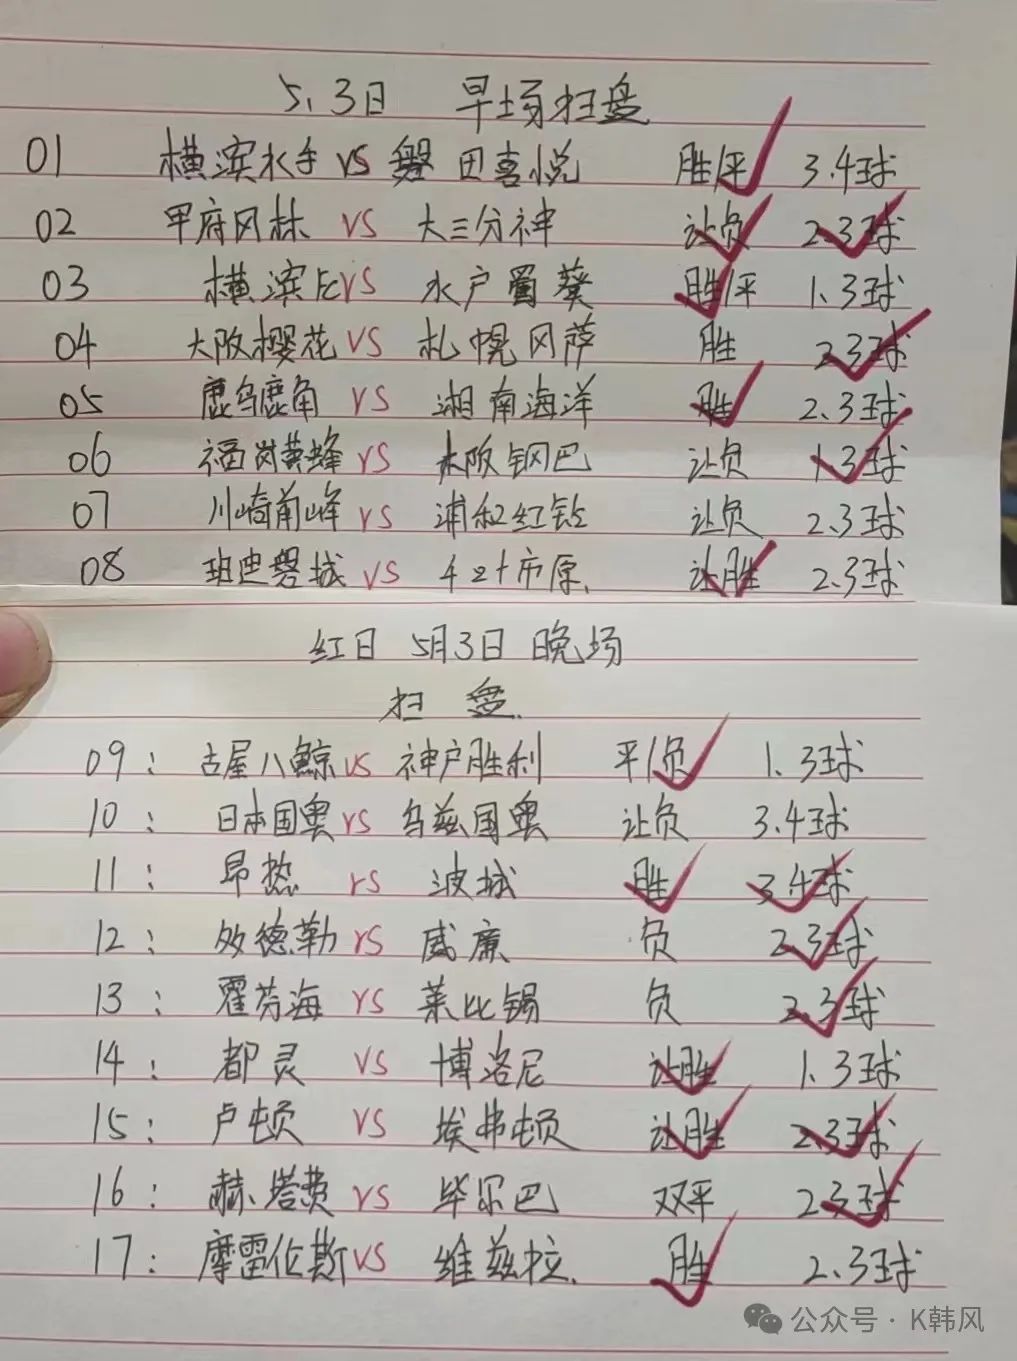 5.3日 早场扫盘
01 横滨水手 VS 磐田喜悦 胜/平 3.4球
02 甲府风林 VS 大三分神 让负 2.3球
03 横滨FC VS 水户蜀葵 胜/平 1.3球
04 大阪樱花 VS 札幌冈萨 胜 2.3球
05 鹿岛鹿角 VS 湘南海洋 胜 2.3球
06 福岗黄蜂 VS 大阪钢巴 让负 1.3球
07 川崎前峰 VS 浦和红钻 让负 2.3球
08 班迪磐城 VS 千叶市原. 让胜 2.3球
红日 5月3日 晚场
扫盘.
09: 古屋八鲸 VS 神户胜利 平/负 1.3球
10: 日本国奥 VS 乌兹国奥 让负 3.4球
11: 昂热 VS 波城 胜 3.4球
12: 德勒 VS 威廉 负 2.3球
13: 霍芬海 VS 莱比锡 负 2.3球
14: 都灵 VS 博洛尼 让胜 1.3球
15: 卢顿 VS 埃弗顿 让胜 2.3球
16: 赫塔费 VS 毕尔巴 双平 2.3球
17: 摩雷伦斯 VS 维兹拉. 胜 2.3球
公众号·K韩风